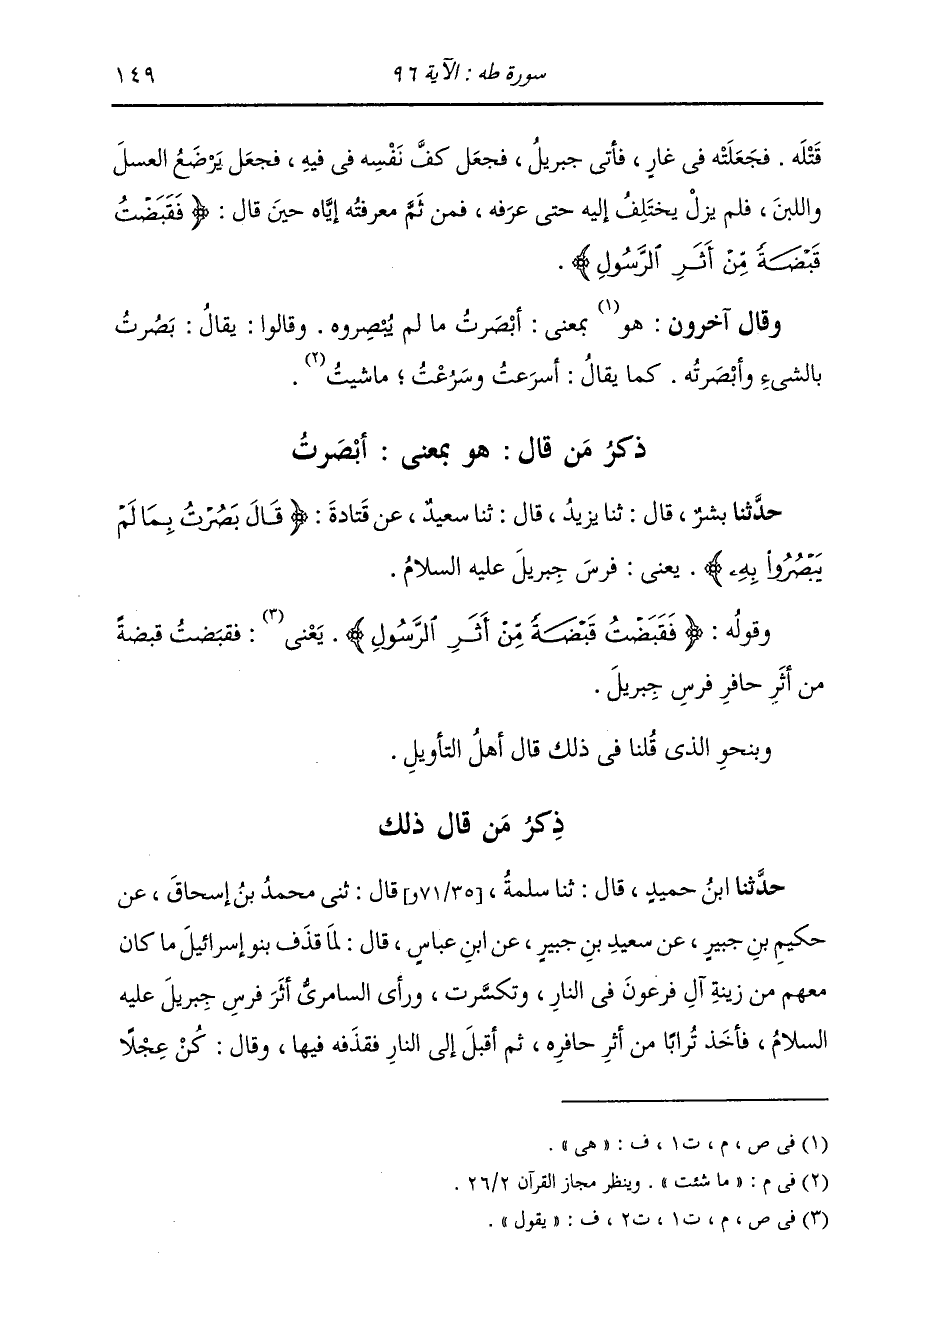 سورة طه : الآية ٩٦ ١٤٩
قَتْلَه . فجَعَلَتْه فى غارٍ ، فأتى جبريلُ ، فجعَل كفَّ نَفْسِه فى فيهِ ، فجعَل يَرْضَعُ العسلَ
واللبنَ ، فلم يزلْ يختَلِفُ إليه حتى عرَفه ، فمن ثَمَّ معرفتُه إيَّاه حينَ قال : ﴿ فَقَبَضْتُ
قَبْضَةً مِّنْ أَثَرِ ٱلرَّسُولِ ﴾ .
وقال آخرون : هو(١) بمعنى : أبْصَرتُ ما لم يُبْصِروه . وقالوا : يقالُ : بَصُرتُ
بالشىءِ وأبْصَرتُه . كما يقالُ : أسرَعتُ وسَرُعْتُ ؛ ماشيتُ(٢) .
ذكرُ مَن قال : هو بمعنى : أبْصَرتُ
حدَّثنا بشرٌ ، قال : ثنا يزيدُ ، قال : ثنا سعيدٌ ، عن قَتادةَ : ﴿ قَالَ بَصُرْتُ بِمَا لَمْ
يَبْصُرُوا۟ بِهِۦ ﴾ . يعنى : فرسَ جِبريلَ عليه السلامُ .
وقولُه : ﴿ فَقَبَضْتُ قَبْضَةً مِّنْ أَثَرِ ٱلرَّسُولِ ﴾ . يَعْنى(٣) : فقبَضتُ قبضةً
من أثَرِ حافرِ فرسِ جِبريلَ .
وبنحوِ الذى قُلنا فى ذلك قال أهلُ التأويلِ .
ذِكرُ مَن قال ذلك
حدَّثنا ابنُ حميدٍ ، قال : ثنا سلمةُ ، [٧١/٣٥و] قال : ثنى محمدُ بنُ إسحاقَ ، عن
حكيمِ بنِ جبيرٍ ، عن سعيدِ بنِ جبيرٍ ، عن ابنِ عباسٍ ، قال : لمَّا قذَف بنو إسرائيلَ ما كان
معهم من زينةِ آلِ فرعونَ فى النارِ ، وتكسَّرت ، ورأى السامرىُّ أثَرَ فرسِ جِبريلَ عليه
السلامُ ، فأخَذ تُرابًا من أثرِ حافرِه ، ثم أقبَل إلى النارِ فقذَفه فيها ، وقال : كُنْ عِجْلًا
(١) فى ص ، م ، ت١ ، ف : « هى » .
(٢) فى م : « ما شئت » . وينظر مجاز القرآن ٢٦/٢ .
(٣) فى ص ، م ، ت١ ، ت٢ ، ف : « يقول » .